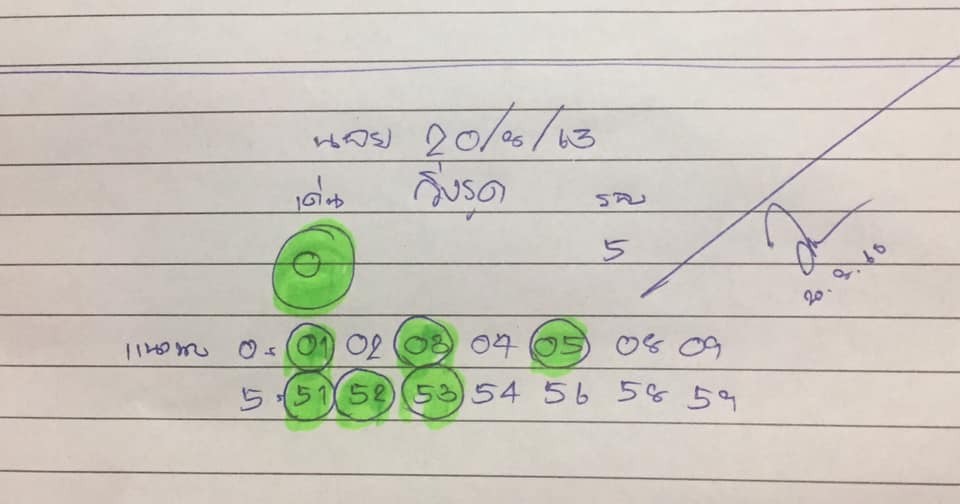 นอย 20/8/63
เด่น วิ่งรูด รอง
0 5
แนวทาง 0. 01 02 03 04 05 08 09
5. 51 52 53 54 56 58 59